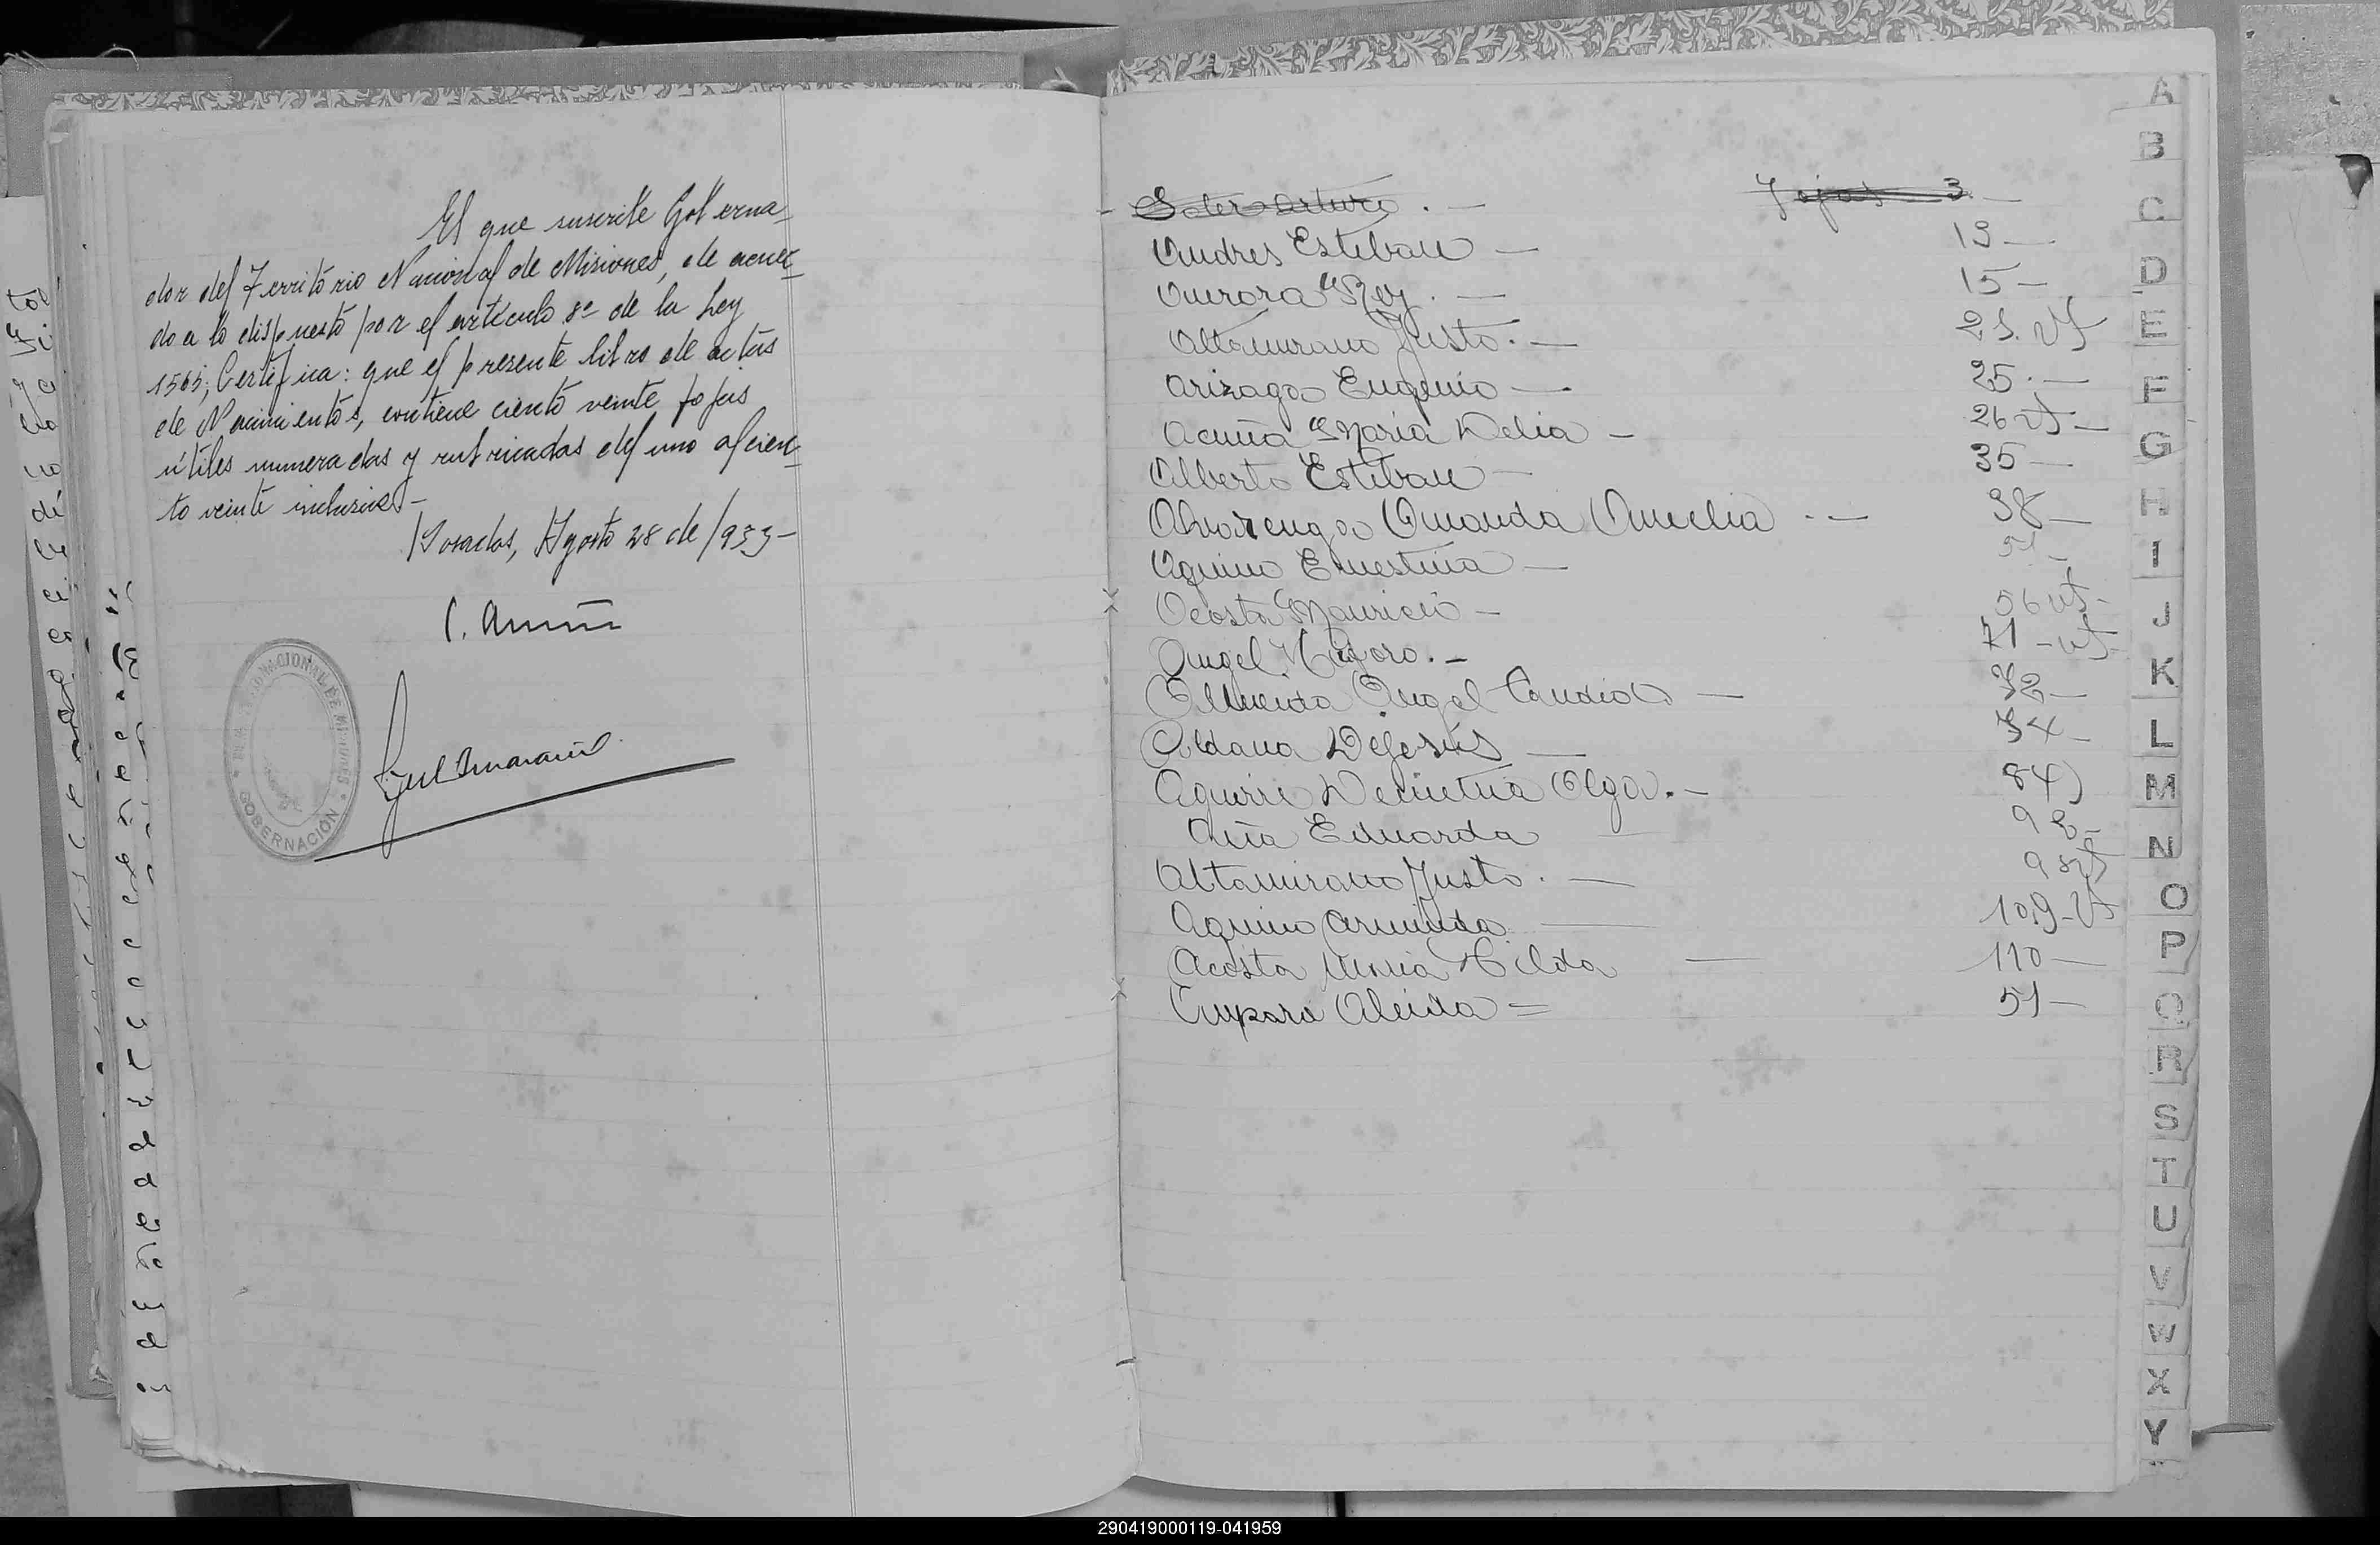 El que suscribe Goberna-
dor del Territorio Nacional de Misiones, de acuer-
do a lo dispuesto por el artículo 8º de la Ley
1565; Certifica: que el presente libro de actas
de Nacimientos, contiene ciento veinte fojas
útiles numeradas y rubricadas del uno al cien-
to veinte inclusive.-
Posadas, Agosto 28 de 1933-
NACIONAL DE MISIONES
GOBERNACIÓN
Soler Arturo . — Fojas 3 —
Andres Esteban — 13 —
Aurora Rey . — 15 —
Altamirano Justo . — 21. vt
Arizaga Eugenio — 25 . —
Acuña Maria Delia — 26 vt —
Alberto Esteban — 35 —
Alvarenga Amanda Amelia . — 38 —
Aquino Ernestina — 51 —
Acosta Mauricio — 56 vt -
Angel . — 71 - vt -
Almeida Angel Candido — 72 —
Aldana Dejesús —
Aguirre Demetria Olga . — 84)
Eduarda
Altamirano Justo . — 98 vt
Aquino Arminda — 109 - vt
Acosta Maria Hilda — 110 —
Amparo Aleida = 51 —
A
B
C
D
E
F
G
H
I
J
K
L
M
N
O
P
Q
R
S
T
U
V
W
X
Y
290419000119-041959